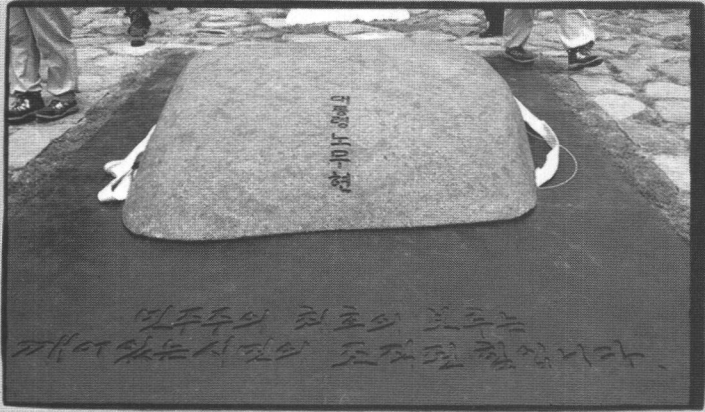 대통령 노무현
민주주의 최후의 보루는
깨어있는 시민의 조직된 힘입니다.